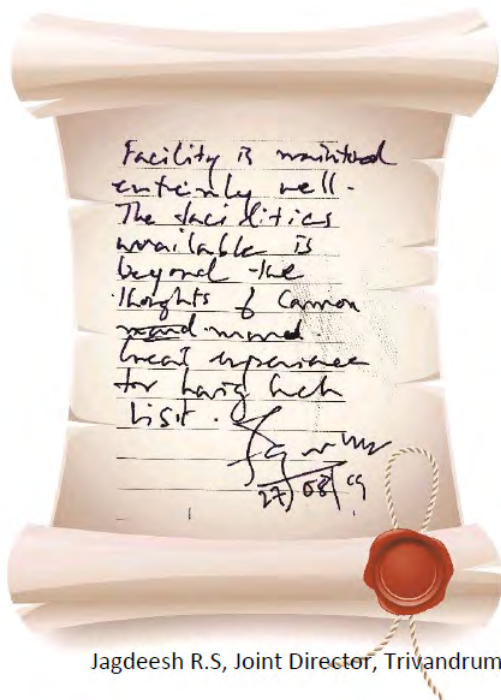 Facility is maintained
extremly well.
The facilities
available is
beyond the
thoughts of Common
mand.
Great experience
for havig such
Visit.
27/08/19
Jagdeesh R.S, Joint Director, Trivandrum